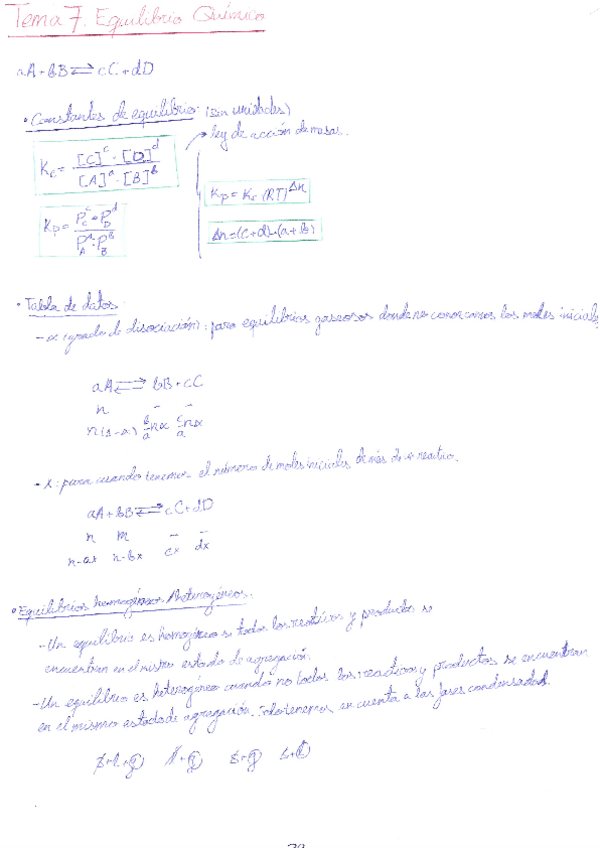 Tema 7. Equilibrio Químico
aA + bB ⇌ cC + dD
• Constantes de equilibrio (sin unidades)
→ ley de acción de masas.
Kc = [C]^c · [D]^d / [A]^a · [B]^b
Kp = Kc (RT)^Δn
Kp = P_C^c · P_D^d / P_A^a · P_B^b
Δn = (c+d) - (a+b)
• Tabla de datos
- α (grado de disociación): para equilibrios gaseosos donde no conocemos los moles iniciales
aA ⇌ bB + cC
n - -
n(1-α) b/a nα c/a nα
- x: para cuando tenemos el número de moles iniciales de más de un reactivo.
aA + bB ⇌ cC + dD
n m - -
n-ax n-bx cx dx
• Equilibrios homogéneos / heterogéneos.
- Un equilibrio es homogéneo si todos los reactivos y productos se
encuentran en el mismo estado de agregación.
- Un equilibrio es heterogéneo cuando no todos los reactivos y productos se encuentran
en el mismo estado de agregación. Solo tenemos en cuenta a las fases
s+l+g l+g s+g s+l